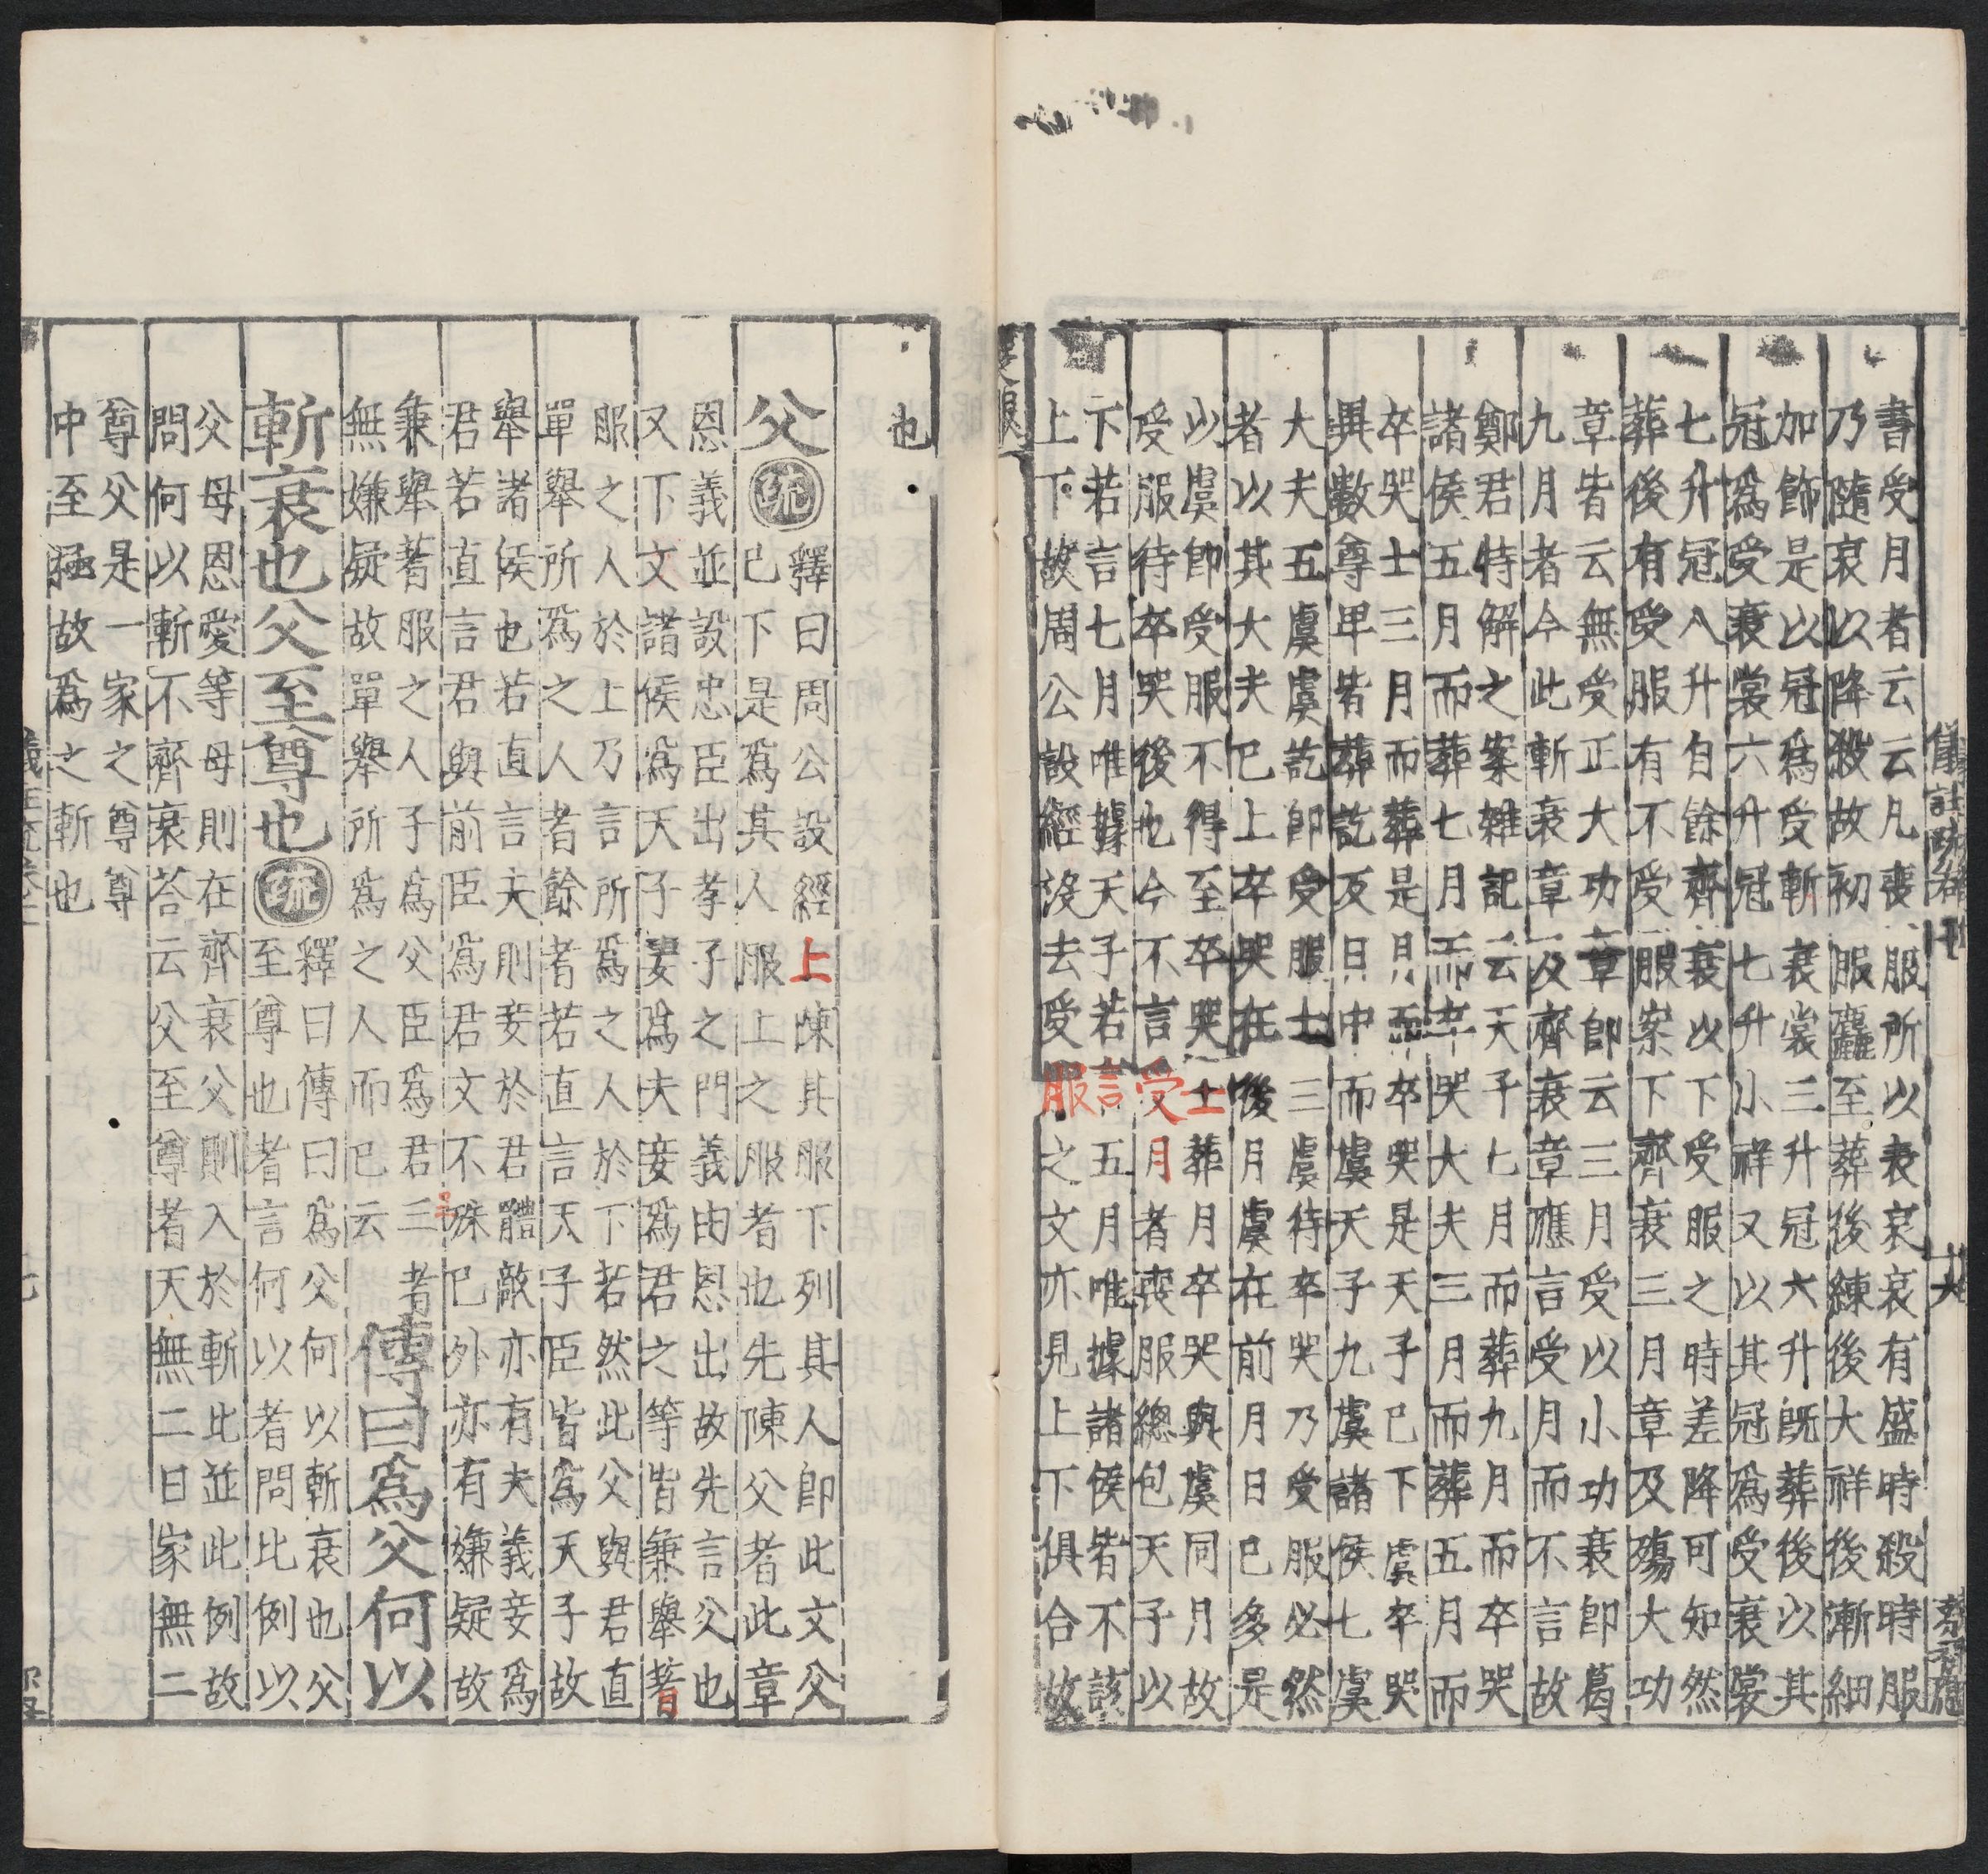 書受月者云云凡喪服所以表哀哀有盛時殺時服
乃隨哀以降殺故初服麤至葬後練後大祥後漸細
加飾是以冠爲受斬衰裳三升冠六升既葬後以其
冠爲受衰裳六升冠七升小祥又以其冠爲受衰裳
七升冠八升自餘齊衰以下受服之時差降可知然
葬後有受服有不受服案下齊衰三月章及殤大功
章皆云無受正大功章即云三月受以小功衰即葛
九月者今此斬衰章及齊衰章應言受月而不言故
鄭君特解之案雜記云天子七月而葬九月而卒哭
諸侯五月而葬七月而卒哭大夫三月而葬五月而
卒哭士三月而葬是月而卒哭是天子已下虞卒哭
異數尊卑皆葬訖反日中而虞天子九虞諸侯七虞
大夫五虞虞訖即受服士三虞待卒哭乃受服必然
者以其大夫已上卒哭在後月虞在前月日已多是
以虞即受服不得至卒哭士葬月卒哭與虞同月故
受服待卒哭後也今不言受月者喪服總包天子以
下若言七月唯據天子若言五月唯據諸侯皆不該
上下故周公設經沒去受服之文亦見上下俱合故
儀註疏卷十一
十六
也
父疏釋曰周公設經上陳其服下列其人即此文父
已下是爲其人服上之服者也先陳父者此章
恩義並設忠臣出孝子之門義由恩出故先言父也
又下文諸侯爲天子妻爲夫妾爲君之等皆兼舉著
服之人於上乃言所爲之人於下若然此父與君直
單舉所爲之人者餘者若直言天子臣皆爲天子故
舉諸侯也若直言夫則妾於君體敵亦有夫義妾爲
君若直言君與前臣爲君文不殊已外亦有嫌疑故
兼舉著服之人子爲父臣爲君二者
無嫌疑故單舉所爲之人而已云
傳曰爲父何以
斬衰也父至尊也疏釋曰傳曰爲父何以斬衰也父
至尊也者言何以者問比例以
父母恩愛等母則在齊衰父則入於斬比並此例故
問何以斬不齊衰荅云父至尊者天無二日家無二
尊父是一家之尊尊
中至極故爲之斬也